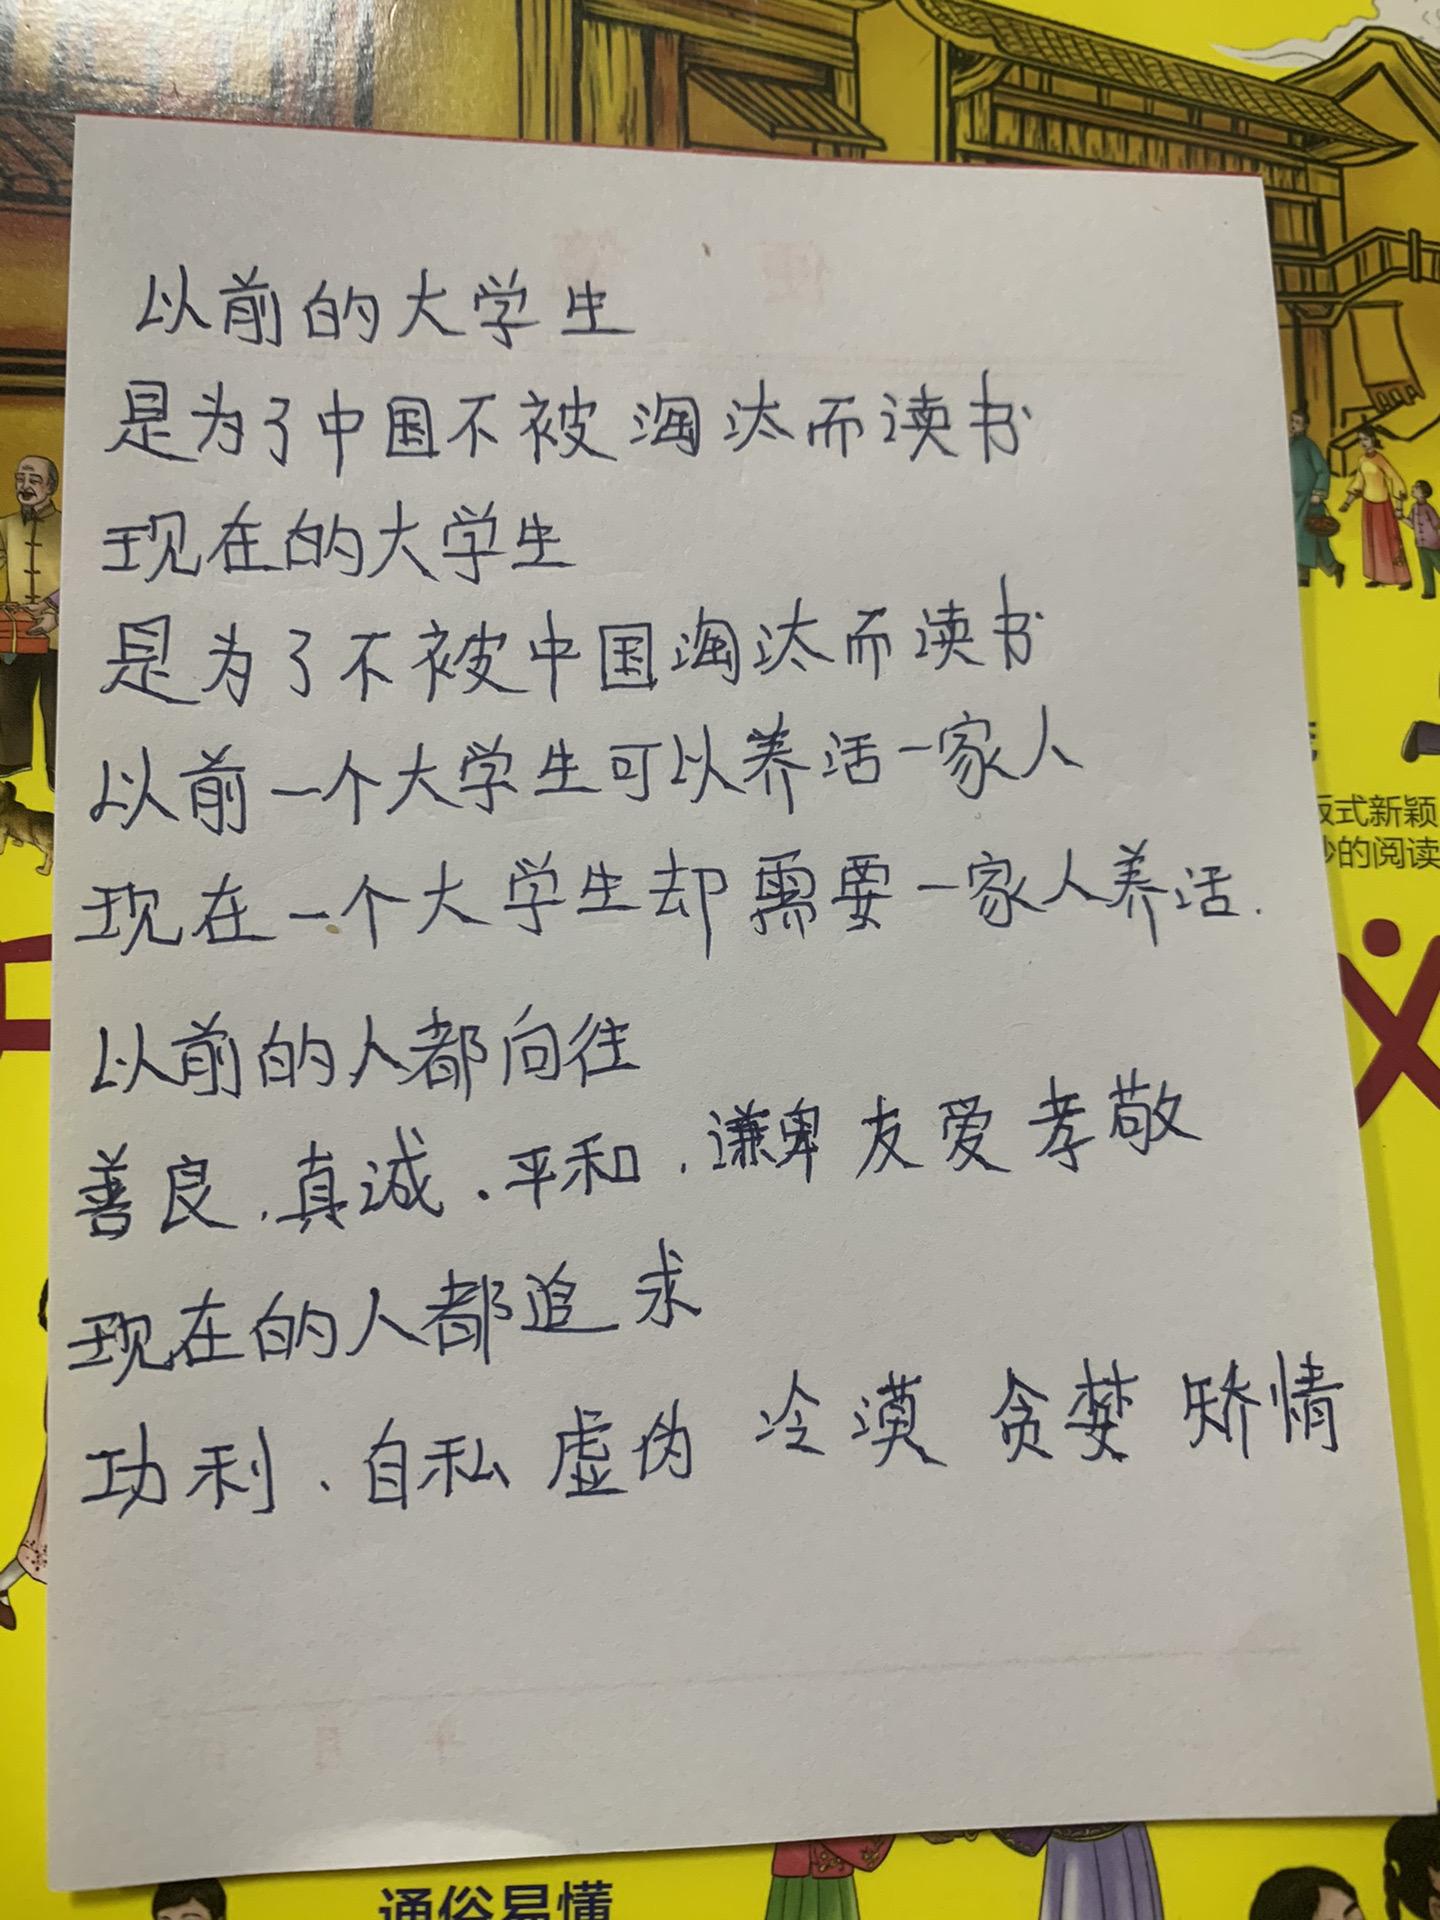 以前的大学生
是为了中国不被淘汰而读书
现在的大学生
是为了不被中国淘汰而读书
以前一个大学生可以养活一家人
现在一个大学生却需要一家人养活.
以前的人都向往
善良.真诚.平和.谦卑 友爱 孝敬
现在的人都追求
功利、自私 虚伪 冷漠 贪婪 矫情
版式新颖
的阅读
通俗易懂